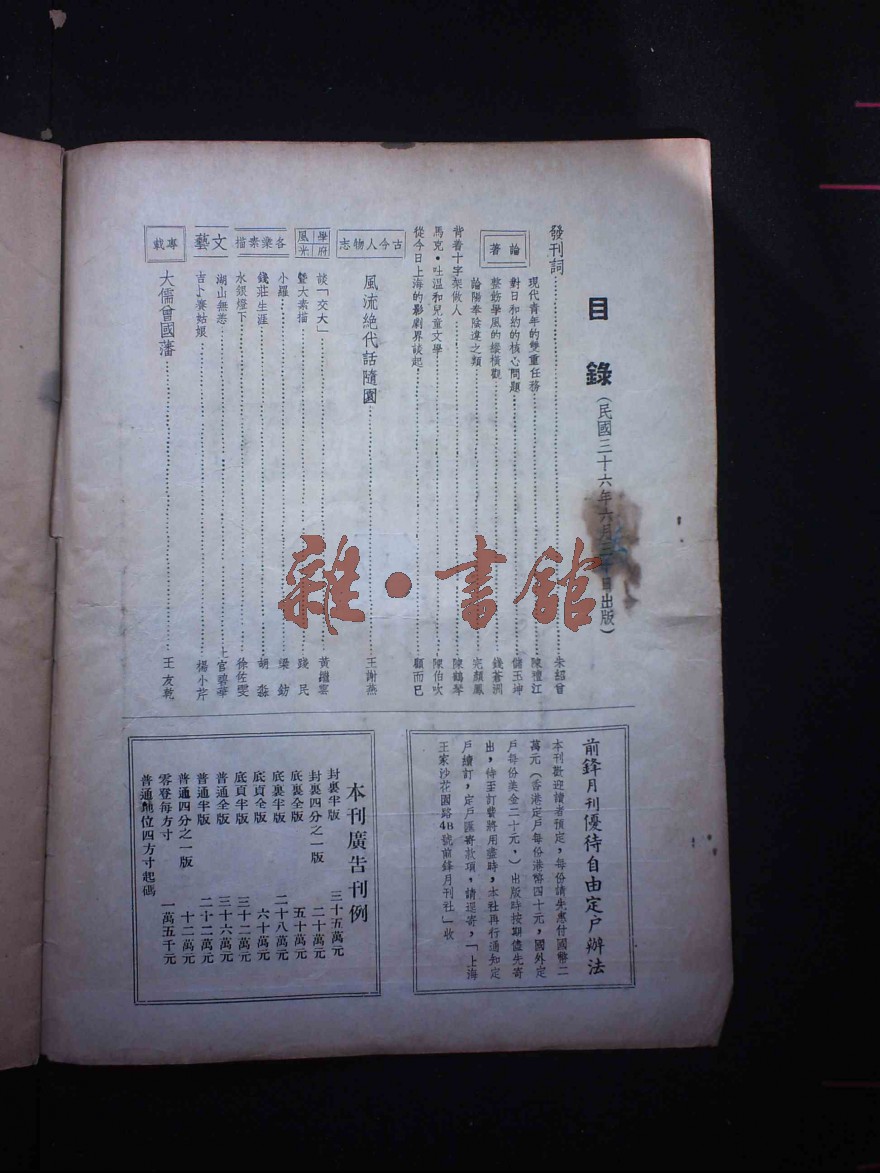 目錄（民國三十六年六月三十日出版）
發刊詞 朱紹曾
論著
現代青年的雙重任務 陳禮江
對日和約的核心問題 儲玉坤
整飭學風的縱橫觀 錢蒼洲
論陽奉陰違之類 完顏鳳
背着十字架做人 陳鶴琴
馬克·吐溫和兒童文學 陳伯吹
從今日上海的影劇界談起 顧而已
古今人物志
風流絶代話隨園 王謝燕
學府風光
談「交大」 黃繼
暨大素描 錢民
各業素描
小羅 梁鈁
錢莊生涯 胡淼
水銀燈下 徐佐雯
文藝
湖山無恙 上官碧華
吉卜賽姑娘 楊小芹
專載
大儒曾國藩 王友乾
前鋒月刊優待自由定户辦法
本刊歡迎讀者預定，每份請先惠付國幣二
萬元（香港定户每份港幣四十元，國外定
户每份美金二十元，）出版時按期儘先寄
出，待至訂費將用盡時，本社再行通知定
户續訂，定户匯寄款項，請逕寄，「上海
王家沙花園路4B號前鋒月刊社」收
本刊廣告刊例
封裏半版 三十五萬元
封裏四分之一版 二十萬元
底裏全版 五十萬元
底裏半版 二十八萬元
底頁全版 六十萬元
底頁半版 三十二萬元
普通全版 三十六萬元
普通半版 二十二萬元
普通四分之一版 十二萬元
零登每方寸 一萬五千元
普通地位四方寸起碼
雜·書館